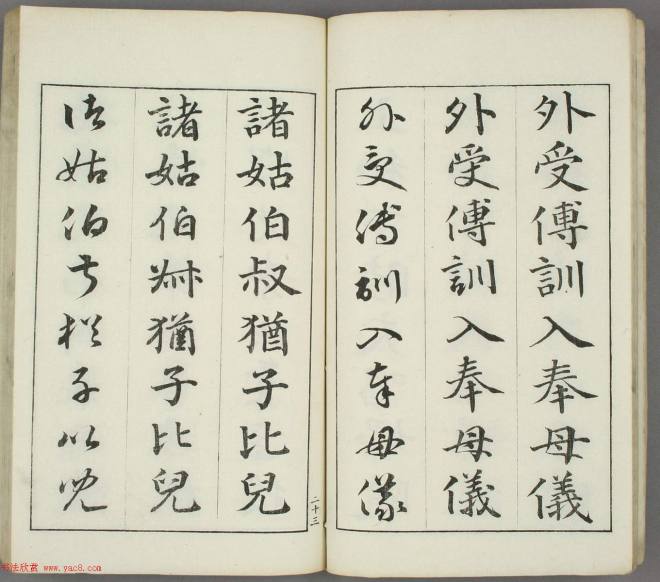 外受傅訓入奉母儀
外受傅訓入奉母儀
外受傅訓入奉母儀
諸姑伯叔猶子比兒
諸姑伯叔猶子比兒
諸姑伯叔猶子比兒
二十三
书法欣赏 www.yac8.com